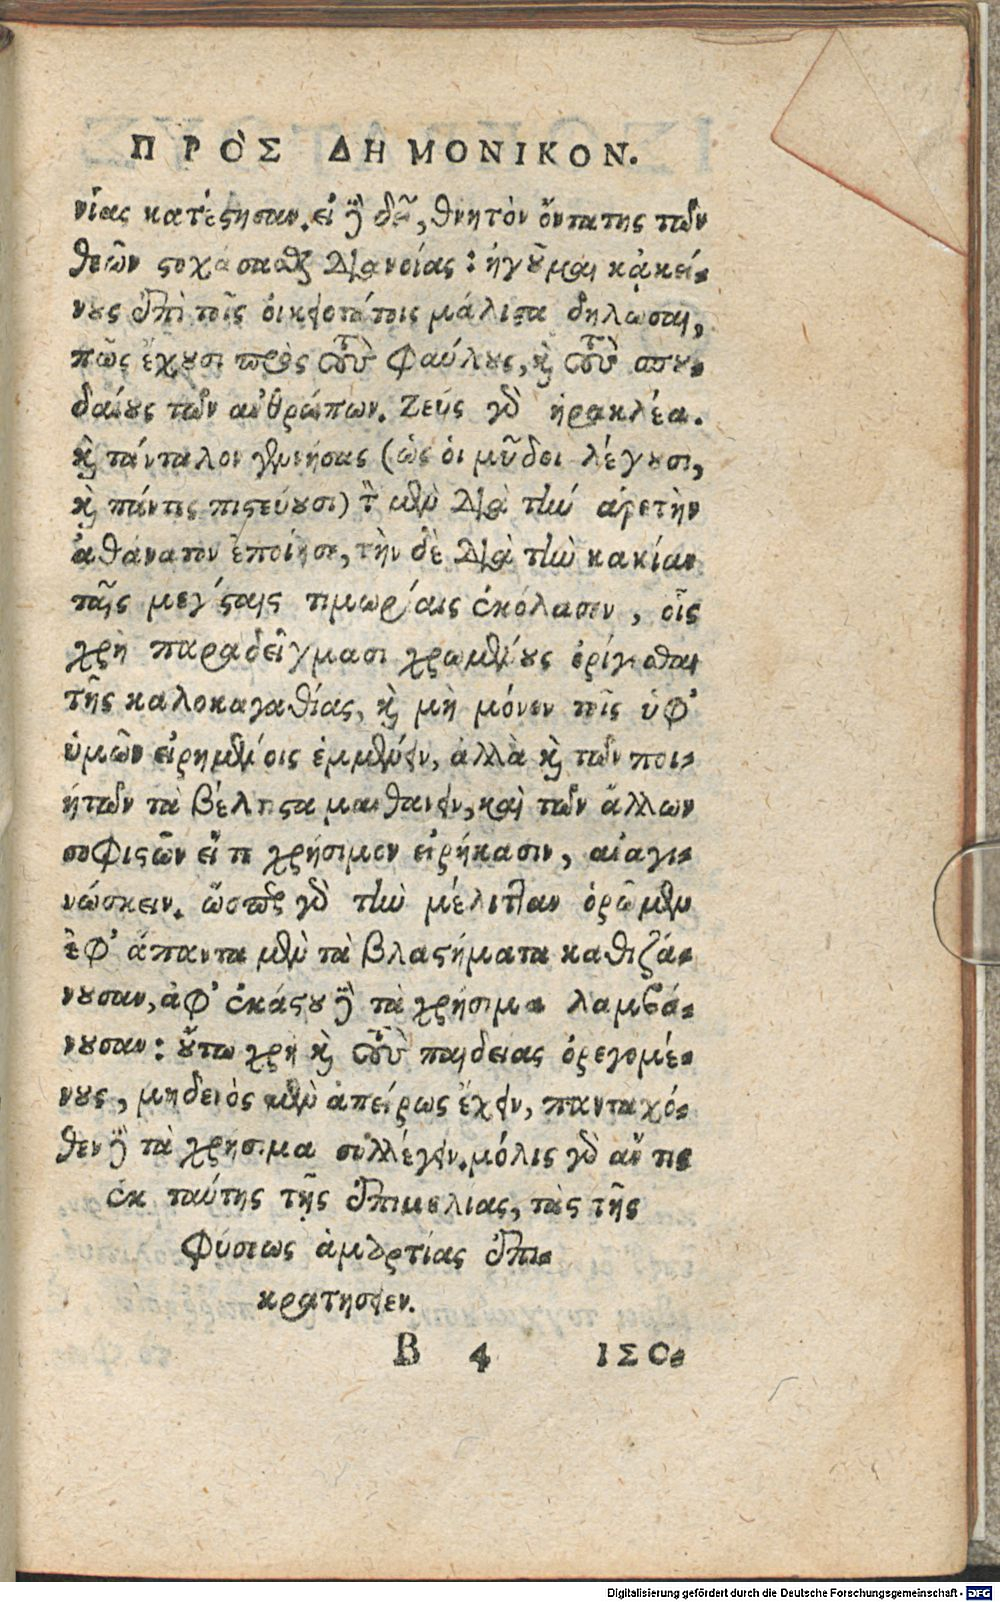 ΠΡῸΣ ΔΗΜΟΝΙΚΟΝ.
νίας κατέϛησαν. εἰ δὲ δεῖ, θνητὸν ὄντα της τῶν
θεῶν ϛοχάσασθαι διανοίας: ἡγοῦμαι κἀκεί-
νους ἐπὶ τοῖς οἰκειοτάτοις μάλιϛα δηλῶσαι,
πῶς ἔχουσι πρὸς τοὺς φαύλους, καὶ τοὺς σπου-
δαίους τῶν ἀνθρώπων. Ζεὺς γὰρ ἡρακλέα.
καὶ τάνταλον γεννήσας (ὡς οἱ μῦθοι λέγουσι,
καὶ πάντες πιϛεύουσι) τὸν μὲν διὰ τὴν ἀρετὴν
ἀθάνατον ἐποίησε, τὴν δὲ διὰ τὴν κακίαν
ταῖς μεγίϛαις τιμωρίαις ἐκόλασεν, οἷς
χρὴ παραδείγμασι χρωμένους ὀρέγεσθαι
τῆς καλοκαγαθίας, καὶ μὴ μόνον τοῖς ὑφ'
ὑμῶν εἰρημένοις ἐμμένειν, ἀλλὰ καὶ τῶν ποι-
ητῶν τὰ βέλτιϛα μανθάνειν, καὶ τῶν ἄλλων
σοφιϛῶν εἴ τι χρήσιμον εἰρήκασιν, ἀναγι-
νώσκειν. ὥσπερ γὰρ τὴν μέλιτταν ὁρῶμεν
ἐφ' ἅπαντα μὲν τὰ βλαϛήματα καθιζά-
νουσαν, ἀφ' ἑκάϛου δὲ τὰ χρήσιμα λαμβά-
νουσαν: οὕτω χρὴ καὶ τοὺς παιδείας ὀρεγομέ-
νους, μηδενὸς μὲν ἀπείρως ἔχειν, πανταχό-
θεν δὲ τὰ χρήσιμα συλλέγειν. μόλις γὰρ ἄν τις
ἐκ ταύτης τῆς ἐπιμελείας, τὰς τῆς
φύσεως ἁμαρτίας ἐπι-
κρατήσειεν.
B 4 ΙΣΟ-
Digitalisierung gefördert durch die Deutsche Forschungsgemeinschaft - DFG